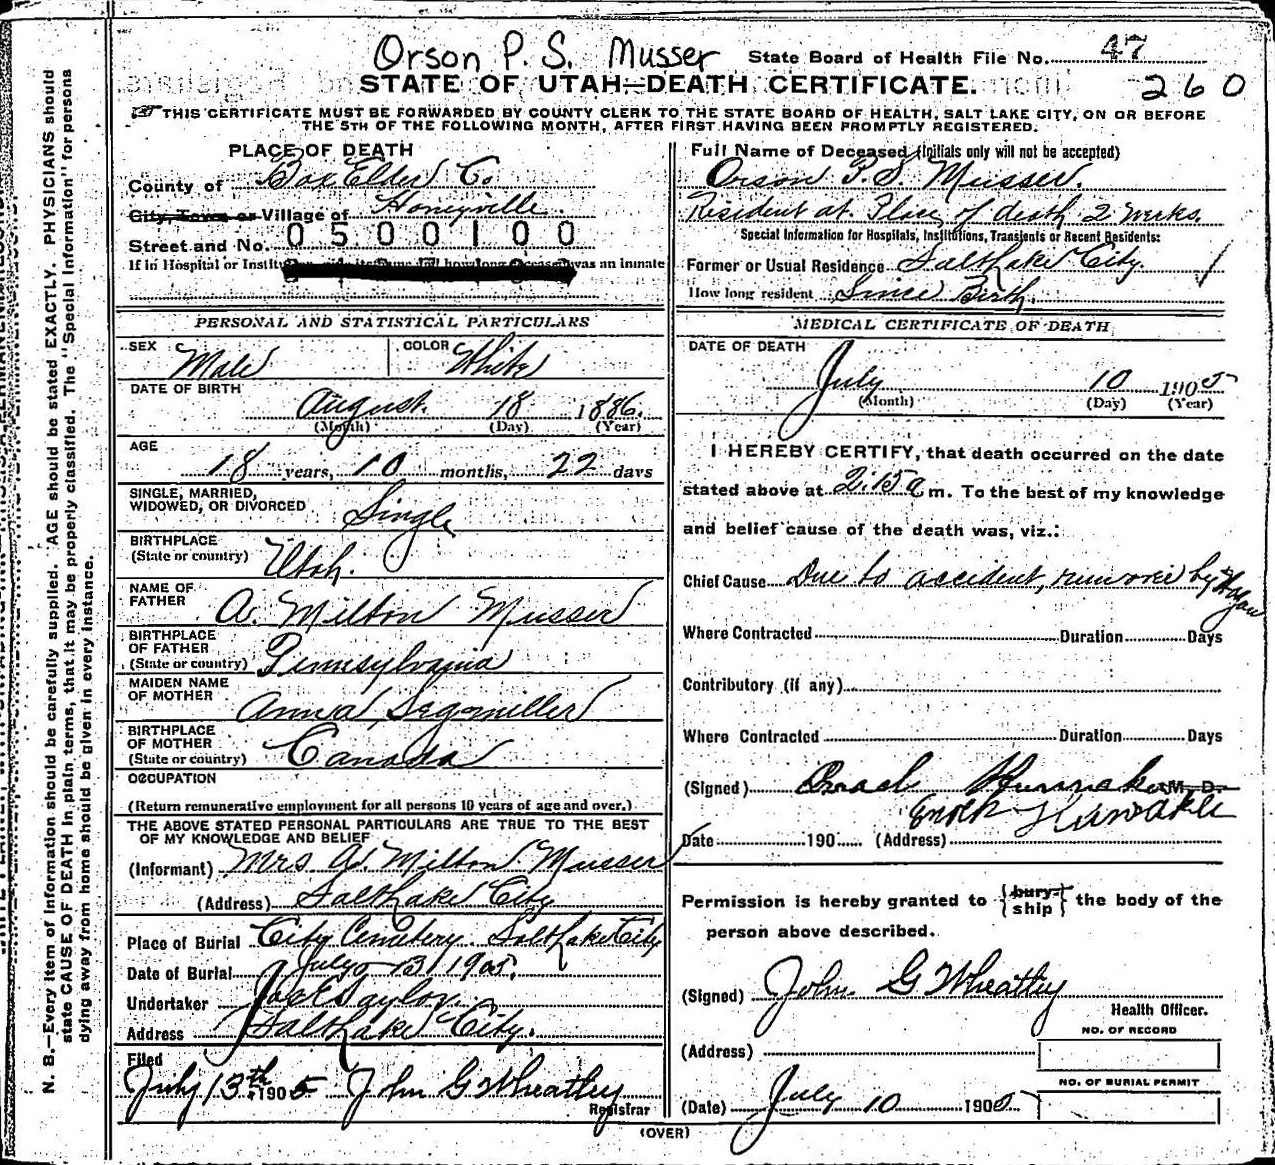 Orson P. S. Musser
State Board of Health File No. 47
STATE OF UTAH—DEATH CERTIFICATE.
260
THIS CERTIFICATE MUST BE FORWARDED BY COUNTY CLERK TO THE STATE BOARD OF HEALTH, SALT LAKE CITY, ON OR BEFORE
THE 5TH OF THE FOLLOWING MONTH, AFTER FIRST HAVING BEEN PROMPTLY REGISTERED.
PLACE OF DEATH
County of Box Elder Co
City, Town or Village of Honeyville
Street and No. 0500100
If in Hospital or was an inmate
PERSONAL AND STATISTICAL PARTICULARS
SEX Male COLOR White
DATE OF BIRTH August 18 1886.
(Month) (Day) (Year)
AGE
18 years, 10 months, 22 days
SINGLE, MARRIED,
WIDOWED, OR DIVORCED Single
BIRTHPLACE
(State or country) Utah.
NAME OF
FATHER A. Milton Musser
BIRTHPLACE
OF FATHER
(State or country) Pennsylvania
MAIDEN NAME
OF MOTHER Anna Segmiller
BIRTHPLACE
OF MOTHER
(State or country) Canada
OCCUPATION
(Return remunerative employment for all persons 10 years of age and over.)
THE ABOVE STATED PERSONAL PARTICULARS ARE TRUE TO THE BEST
OF MY KNOWLEDGE AND BELIEF
(Informant) Mrs A. Milton Musser
(Address) Salt Lake City
Place of Burial City Cemetery. Salt Lake City
Date of Burial July 13 1905.
Undertaker Taylor
Address Salt Lake City.
Filed
July 13th 1905 John G Wheatley
Registrar
Full Name of Deceased (Initials only will not be accepted)
Orson P. S. Musser.
Resident at Place of death 2 weeks
Special Information for Hospitals, Institutions, Transients or Recent Residents:
Former or Usual Residence Salt Lake City.
How long resident Since Birth.
MEDICAL CERTIFICATE OF DEATH
DATE OF DEATH
July 10 1905
(Month) (Day) (Year)
I HEREBY CERTIFY, that death occurred on the date
stated above at 2:15 a m. To the best of my knowledge
and belief cause of the death was, viz.:
Chief Cause Due to accident, run over by Wagon
Where Contracted Duration Days
Contributory (if any)
Where Contracted Duration Days
(Signed) M. D.
Enoch Hunsaker
Date 190 (Address)
Permission is hereby granted to {bury- ship} the body of the
person above described.
(Signed) John G Wheatley
Health Officer.
NO. OF RECORD
(Address)
NO. OF BURIAL PERMIT
(Date) July 10 1905
(OVER)
N. B.—Every item of information should be carefully supplied. AGE should be stated EXACTLY. PHYSICIANS should
state CAUSE OF DEATH in plain terms, that it may be properly classified. The "Special Information" for persons
dying away from home should be given in every instance.